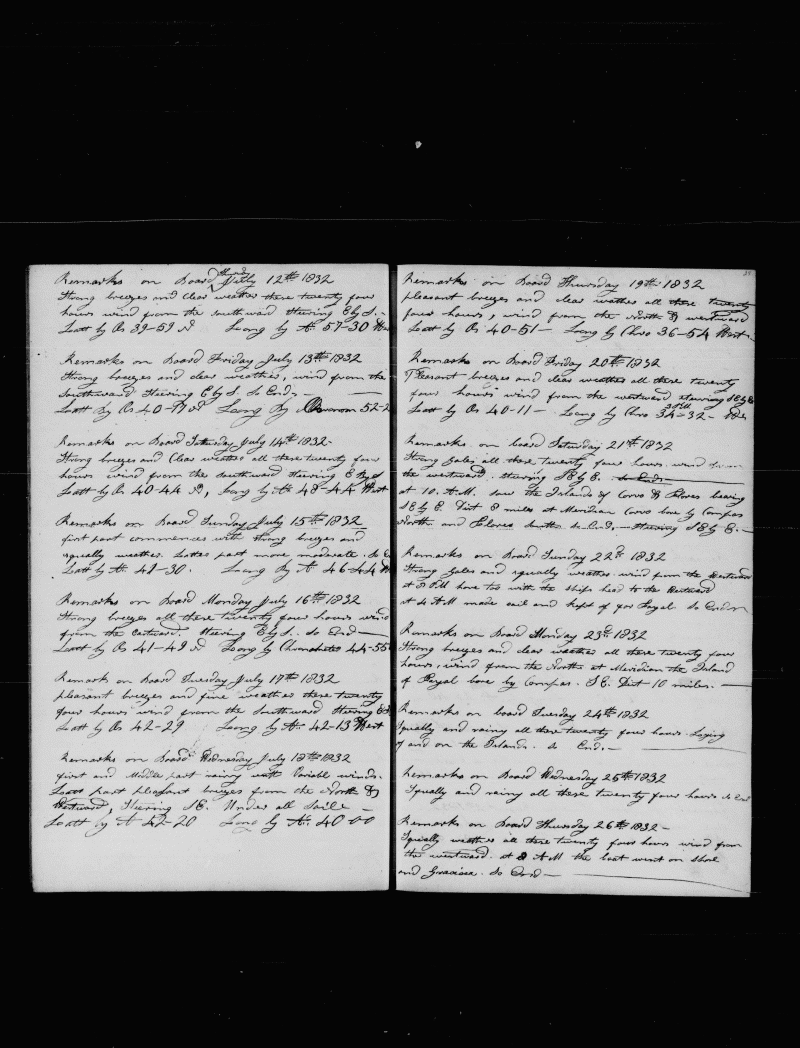 Remarks on Board Thursday July 12th 1832
Strong breezes and clear weather these twenty four
hours wind from the Southward Steering E by S.
Latt by Os 39-59 N Loong By Ar 57-30 West
Remarks on Board Friday July 13th 1832
Strong breezes and clear weather, wind from the
Southward Steering E by S. So Ends
Latt By Os 40- Loong By 52-2
Remarks on Board Saturday July 14th 1832
Strong breezes and Clear weather all these twenty four
hours wind from the Southward Steering E by S
Latt by Os 40-44 N, Loong by Ar 48-44 West
Remarks on Board Sunday July 15th 1832
first part commences with strong breezes and
squally weather. Latter part more moderate. So E
Latt by Ar 41-30. Loong By Ar 46-44 W
Remarks on Board Monday July 16th 1832
Strong breezes all these twenty four hours wind
from the Eastward. Steering E by S. So End
Latt by Os 41-49 N Loong by 44-55
Remarks on Board Tuesday July 17th 1832
pleasant breezes and fine weather these twenty
four hours wind from the Southward Steering
Latt by Os 42-29 Loong by Ar. 42-13 West
Remarks on Board Wednesday July 18th 1832
first and Middle part rainy with Variable winds.
Later part pleasant breezes from the North &
Westward, Steering SE. Under all Saile
Latt by Ar 42-20 Loong by Ar. 40 00
Remarks on Board Thursday 19th 1832
pleasant breezes and clear weather all these twenty
four hours, wind from the North & westward
Latt by Os 40-51 - Loong by Chro 36-54 West
Remarks on Board Friday 20th 1832
Pleasant breezes and clear weather all these twenty
four hours wind from the westward steering SE by E
Latt by Os 40-11 - Loong by Chro 32
Remarks on board Saturday 21st 1832
Strong gales all these twenty four hours wind from
the westward. steering SE by E. So Ends
at 10. A.M. saw the Islands of Corvo & Flores bearing
SE by E. Dist 8 miles at Meridian Corvo bore by Compas
North and Flores South So End. - Steering SE by E.
Remarks on Board Sunday 22d 1832
Strong Gales and squally weather wind from the Westward
at 8 P.M hove too with the ships head to the Westward
at 4 A.M made sail and kept of for Fayal. So Ends
Remarks on Board Monday 23d 1832
Strong breezes and clear weather all these twenty four
hours, wind from the North at Meridian the Island
of Fayal bore by Compas. SE. Dist 10 miles.
Remarks on board Tuesday 24th 1832
Squally and rainy all these twenty four hours. Laying
of and on the Islands. So End.
Remarks on Board Wednesday 25th 1832
Squally and rainy all these twenty four hours So End
Remarks on Board Thursday 26th 1832
Squally weather all these twenty four hours wind from
the westward. at 8 A.M the boat went on shoe
and Graciosa. So End